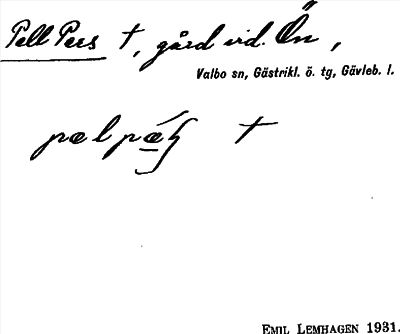 Pell Pers †, gård vid. Ön,
Valbo sn, Gästrikl. ö. tg, Gävleb. l.
pælpǽ̲ʂ †
EMIL LEMHAGEN 1931.